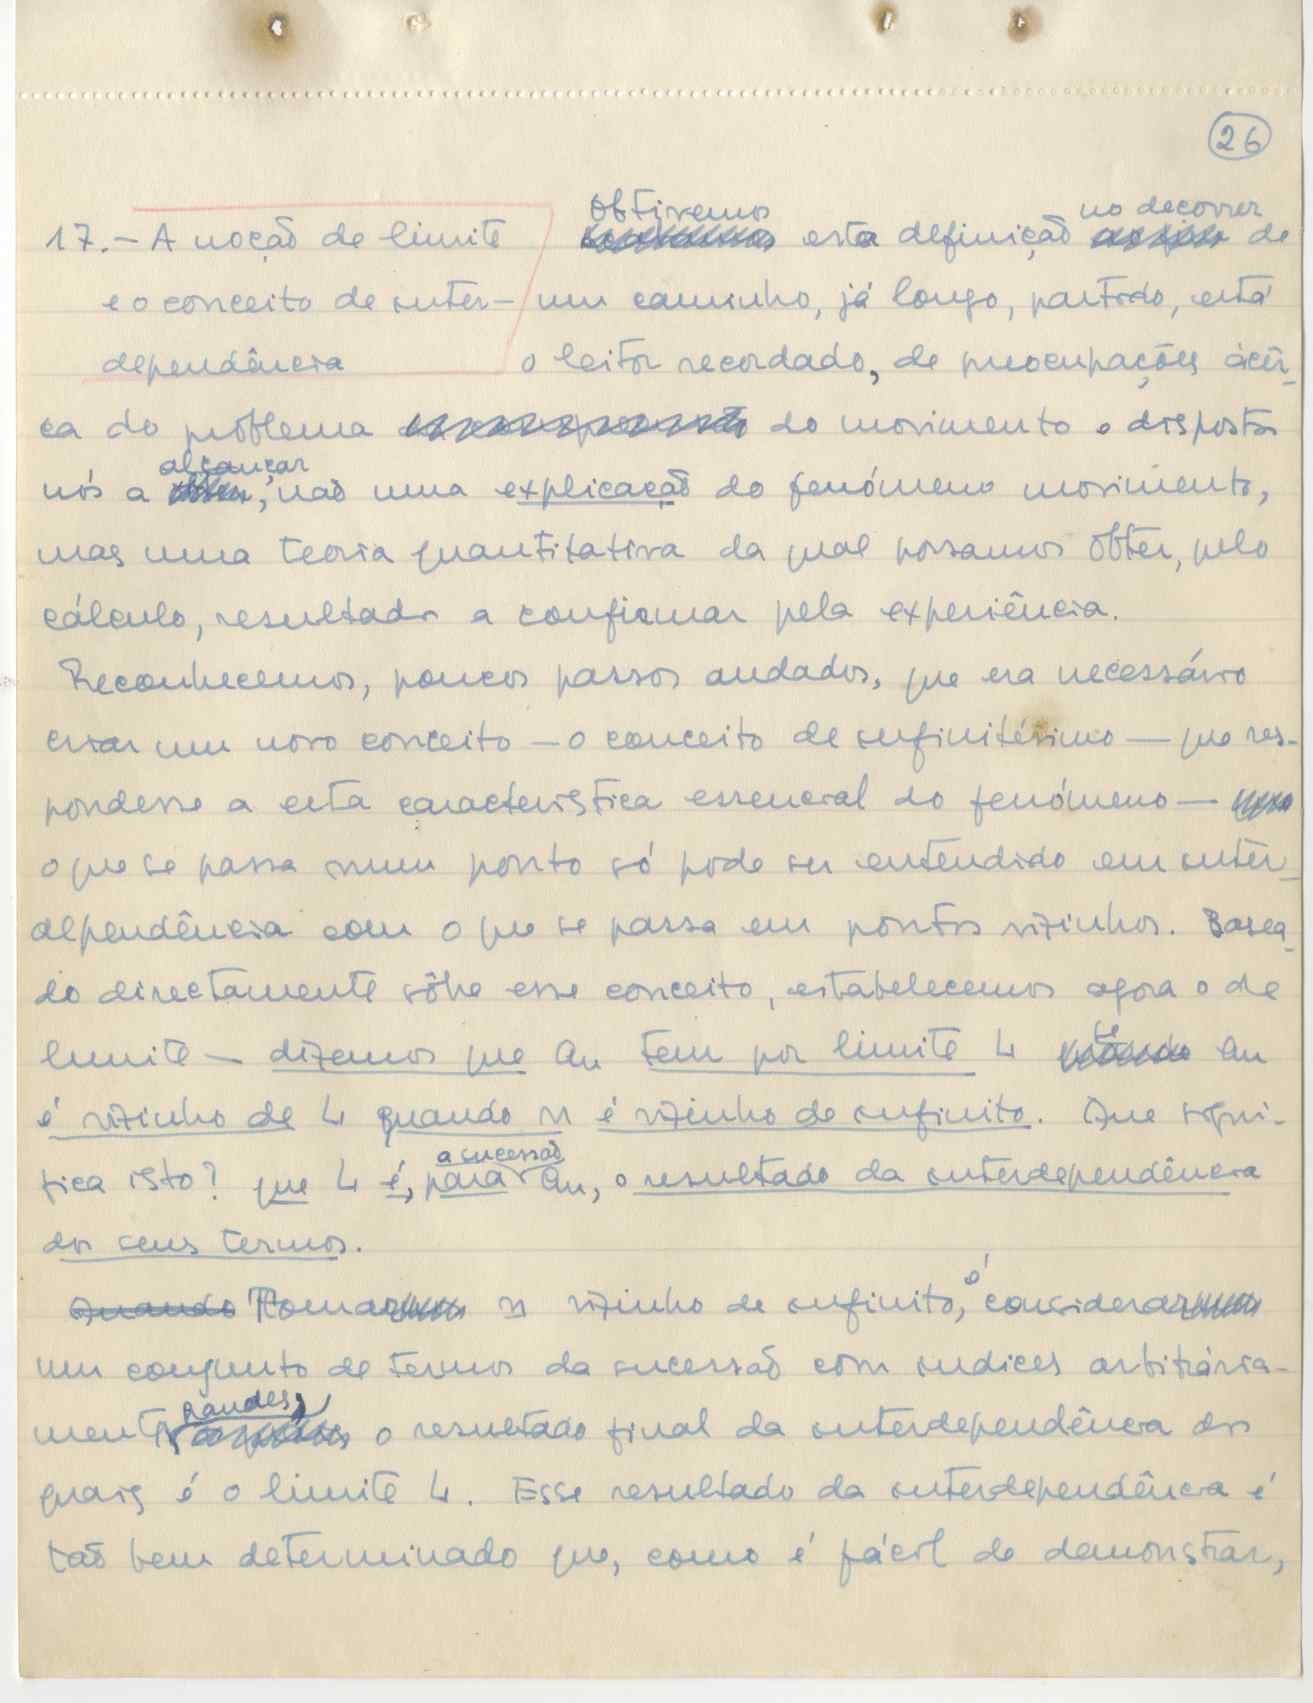 26
17.- A noção de limite Obtivemos esta definição no decorrer de
e o conceito de inter- um caminho, já longo, partido, está
dependência o leitor recordado, de preocupações àcêr-
ca do problema do movimento e dispostos
nós a alcançar, não uma explicação do fenómeno movimento,
mas uma teoria quantitativa da qual possamos obter, pelo
cálculo, resultados a confirmar pela experiência.
Reconhecemos, poucos passos andados, que era necessário
criar um novo conceito — o conceito de infinitésimo — que res-
pondesse a esta característica essencial do fenómeno —
o que se passa num ponto só pode ser entendido em inter-
dependência com o que se passa em pontos vizinhos. Basea-
do directamente sôbre esse conceito, estabelecemos agora o de
limite — dizemos que an tem por limite L se an
é vizinho de L quando n é vizinho de infinito. Que signi-
fica isto? que L é, para a sucessão an, o resultado da interdependência
dos seus termos.
Quando Tomar n vizinho de infinito, é considerar
um conjunto de termos da sucessão com indices arbitrária-
mente grandes, o resultado final da interdependência dos
quais é o limite L. Esse resultado da interdependência é
tão bem determinado que, como é fácil de demonstrar,